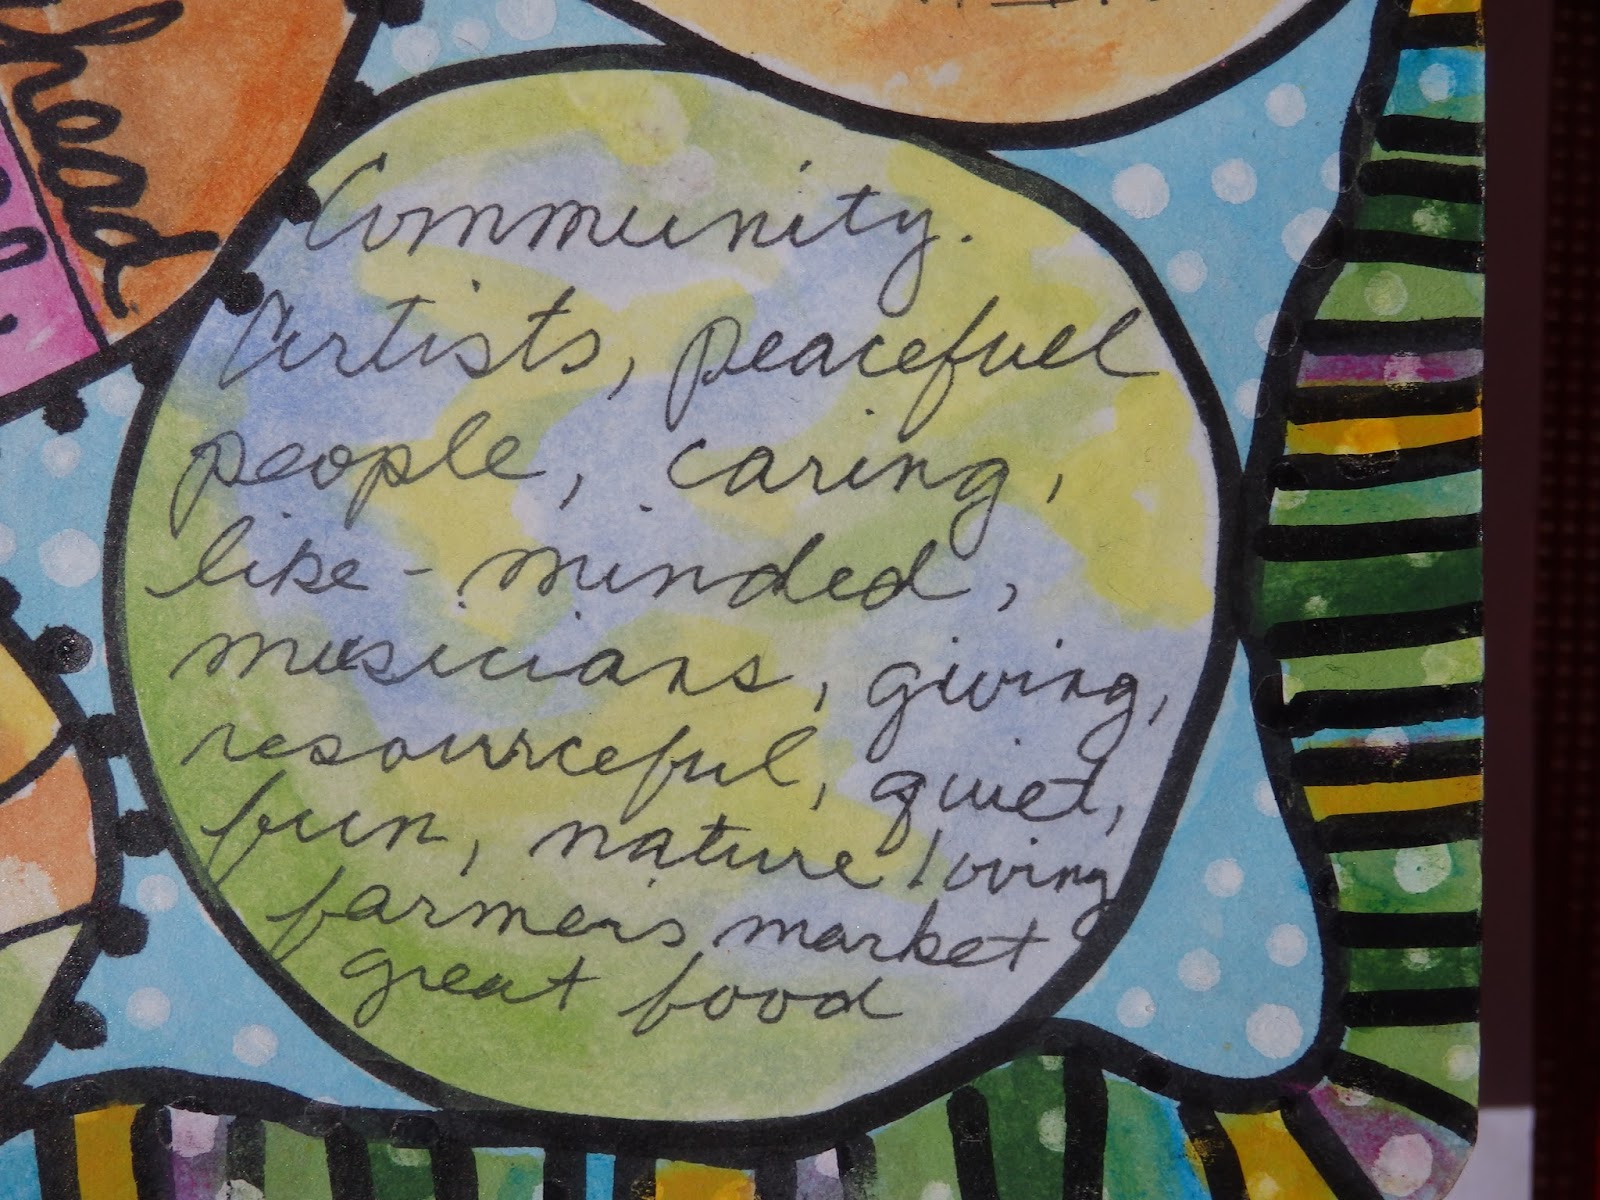 head
Community.
Artists, peacefuel
people, caring,
like-minded,
musicians, giving,
resourceful, quiet,
fun, nature loving
farmers market
great food